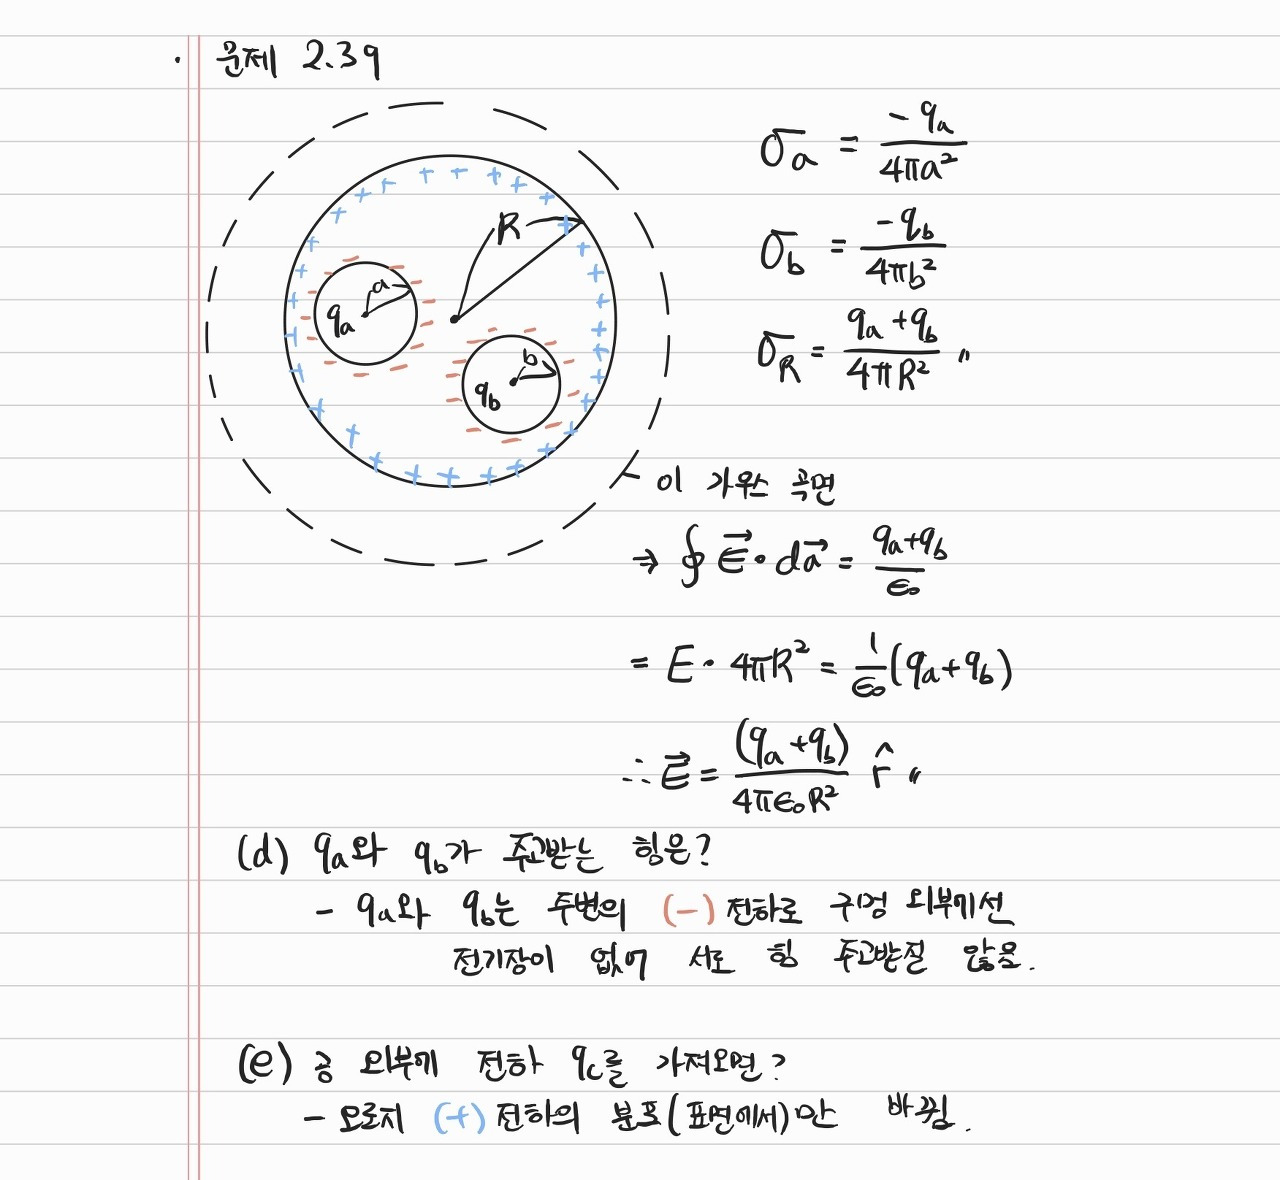 · 문제 2.39
σa = -qa / 4πa²
σb = -qb / 4πb²
σR = qa+qb / 4πR² 〃
R
a
qa
b
qb
이 가우스 곡면
→ ∮ E⃗ · da⃗ = qa+qb / ε₀
= E · 4πR² = 1/ε₀ (qa+qb)
∴ E⃗ = (qa+qb) / 4πε₀R² r̂ 〃
(d) qa와 qb가 주고받는 힘은?
- qa와 qb는 주변의 (-) 전하로 구멍 외부에선
전기장이 없어 서로 힘 주고받질 않음.
(e) 공 외부에 전하 qc를 가져오면?
- 오로지 (+) 전하의 분포(표면에서)만 바뀜.